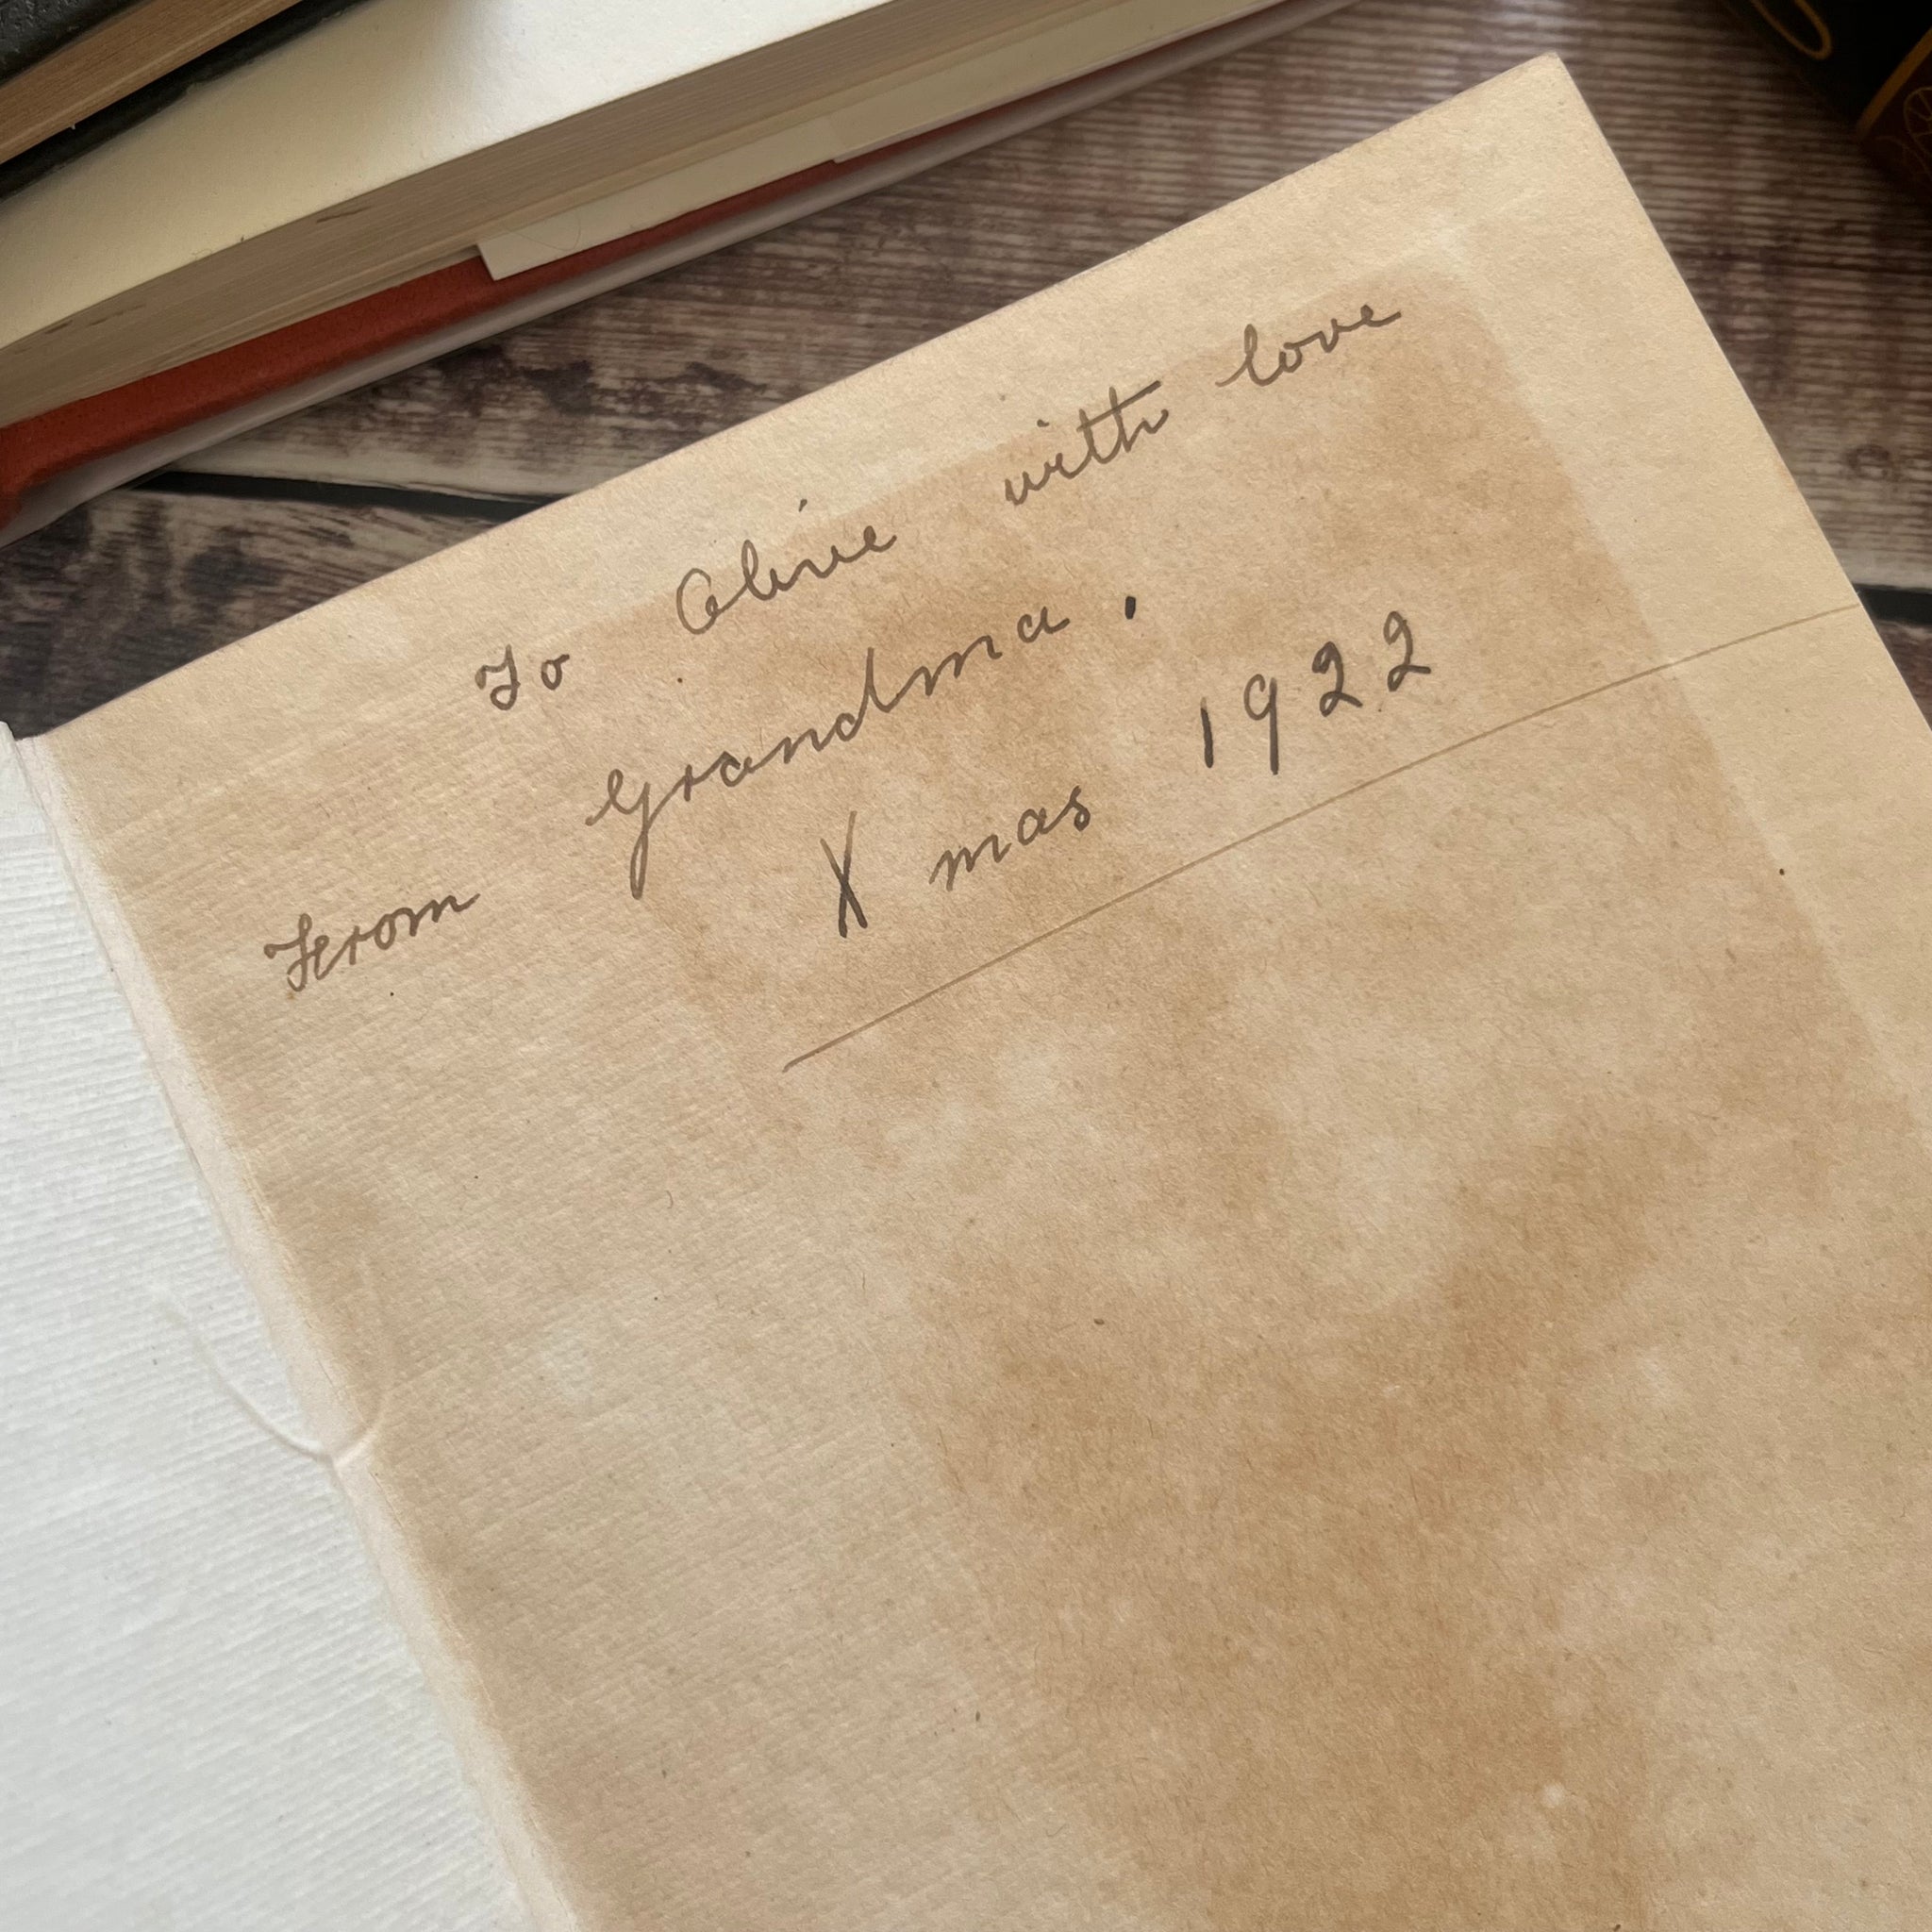 To Olive with love
From Grandma.
X mas 1922